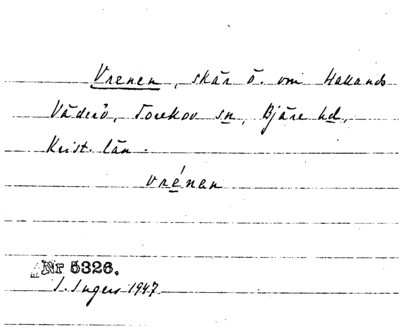 Vrenen, skär ö. om Hallands
Väderö, Torekov sn, Bjäre hd,
Krist. län.
vrénen
Nr 5326.
I. Ingers 1947